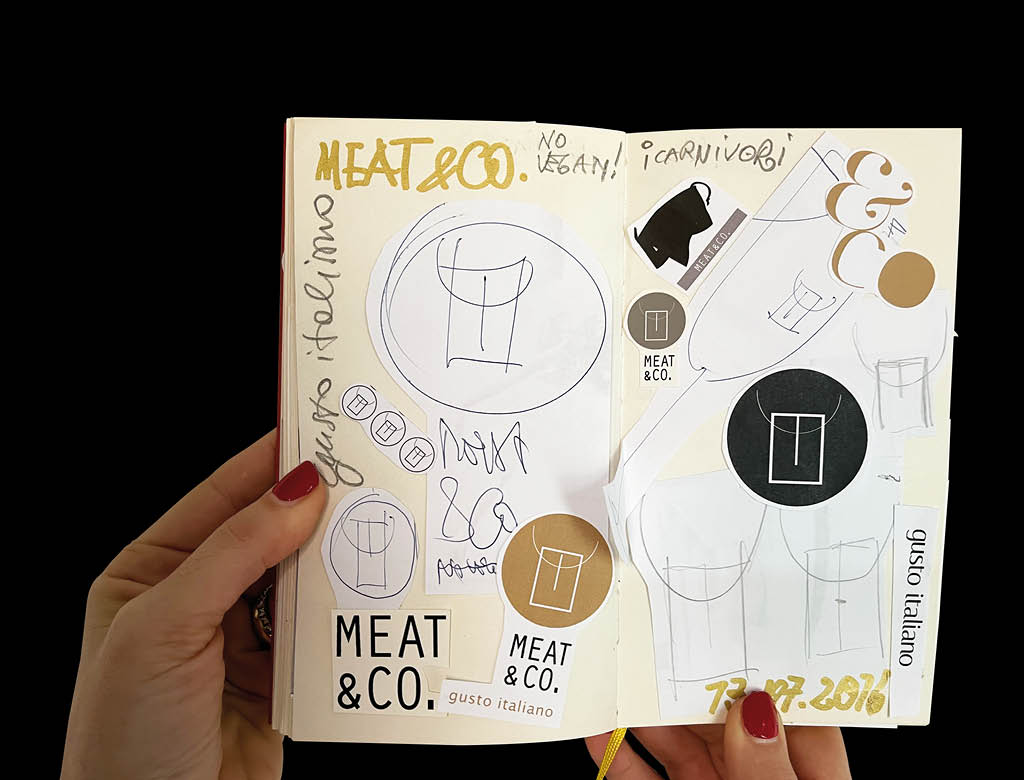 MEAT & CO.
NO
VEGAN!
gusto italiano
MEAT
& Co
MEAT
&CO.
MEAT
&CO.
gusto italiano
i CARNIVORI
MEAT&CO.
MEAT
&CO.
&
C
gusto italiano
13.07.2016